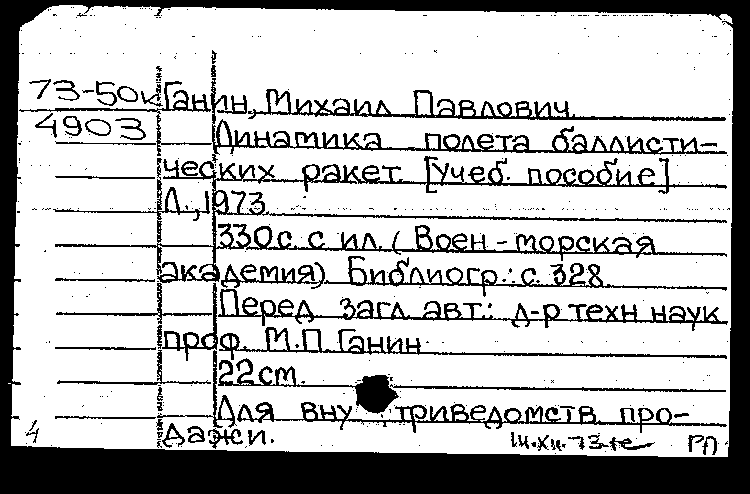 73-50к Ганин, Михаил Павлович.
4903 Динамика полета баллисти-
ческих ракет. [Учеб. пособие]
Л., 1973.
330 с. с ил. (Воен-морская
академия). Библиогр.: с. 328.
Перед загл. авт.: д-р техн наук
проф. М.П. Ганин
22 см.
Для внутриведомств. про-
дажи.
4 РП